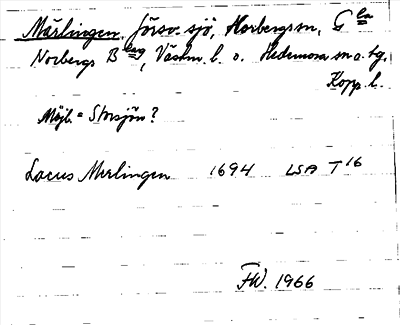 Märlingen. Försv. sjö, Norbergs sn, Gla
Norbergs Blag, Västm. l. o. Hedemora sn o. tg,
Kopp. l.
Möjl. = Storsjön?
Lacus Merlingen 1694 LSA T16
FW. 1966